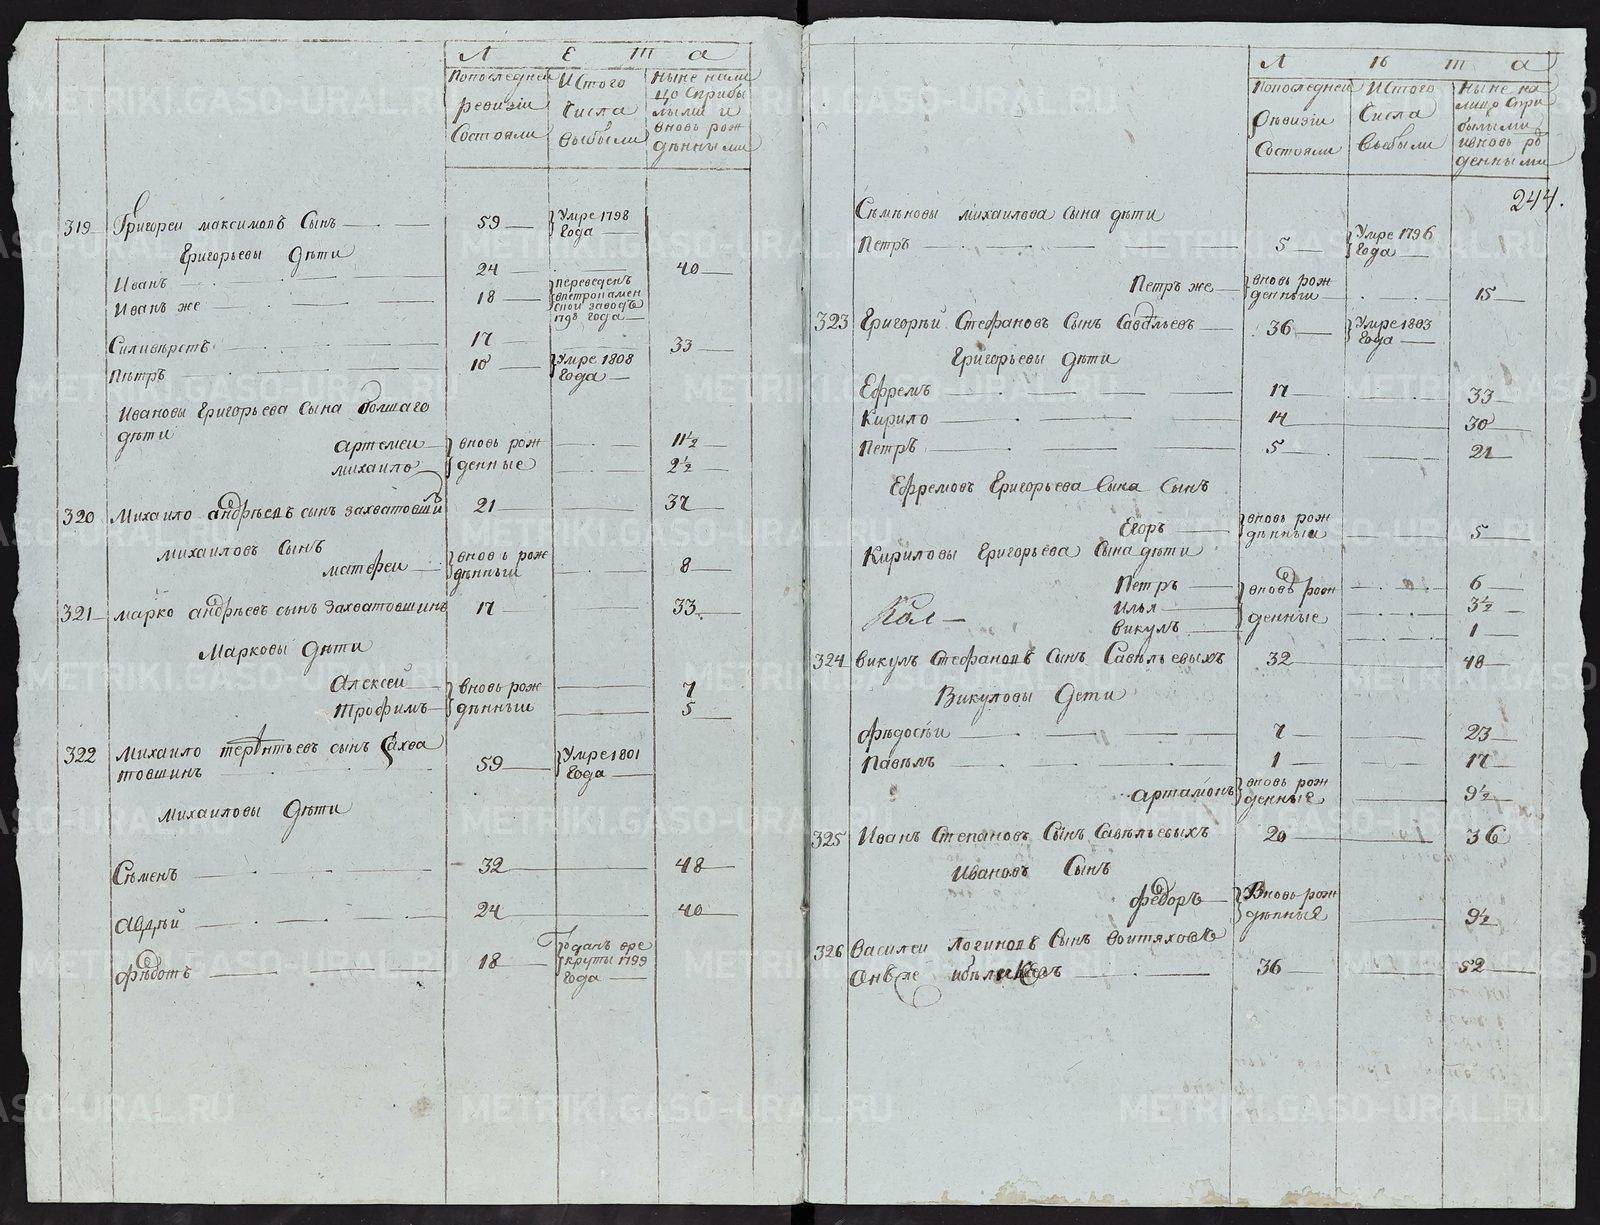 Л Е т а
Попоследней ревизии Состояли
Истого Числа Выбыли
Ныне нали цо Сприбы лыми и вновь рож денными
319 Григореи максимовъ Сынъ 59 Умре 1798 Года
Григорьевы Дѣти
Иванъ 24 40
Иванъ же 18 переведенъ
Года
Силивѣрстъ 17 33
Пѣтръ 10 Умре 1808 Года
Ивановы Григорьева Сына болшаго
дѣти
Артемеи вновь рож 11½
михаило денные 2½
320 Михаило андрѣевъ сынъ захватовшинъ 21 37
михаиловъ Сынъ
матфеи вновь рож дѣнныи 8
321 марко андрѣевъ сынъ Захватовшинъ 17 33
Марковы Дѣти
Алексеи вновь рож 7
трофимъ дѣнныи 5
322 Михаило терѣнтьевъ сынъ Захва
товшинъ 59 Умре 1801 Года
Михаиловы Дѣти
Сѣменъ 32 48
Авдѣй 24 40
Фѣдотъ 18 отданъ вре круты 1799 Года
Л ѣ т а
Попоследней рѣвизии Состояли
Истого Числа Выбыли
Ныне на лицо Спри былыми ивновь ро денными
244.
Сѣмѣновы михаилова сына дѣти
Петръ 5 Умре 1796 Года
Петръ же вновь рож денныи 15
323 Григорѣй Стефановъ Сынъ Савѣльевъ 36 Умре 1803 Года
Григорьевы дѣти
Ефремъ 17 33
Кирило 14 30
Петръ 5 21
Ефремовъ Григорьева Сына Сынъ
Егоръ вновь рож дѣнныи 5
Кириловы Григорьева Сына дѣти
Петръ вновь рож 6
илья денные 3½
викулъ 1
324 викулъ Стефановъ Сынъ Савѣльевыхъ 32 48
Викуловы Дети
Фѣдосѣи 7 23
Павѣлъ 1 17
артамонъ вновь рож денные 9½
325 Иванъ Степановъ Сынъ Савѣльевыхъ 20 36
Ивановъ Сынъ
Федоръ Вновь рож дѣнные 9½
326 Василеи Логиновъ Сынъ воитяховъ
36 52
METRIKI.GASO-URAL.RU